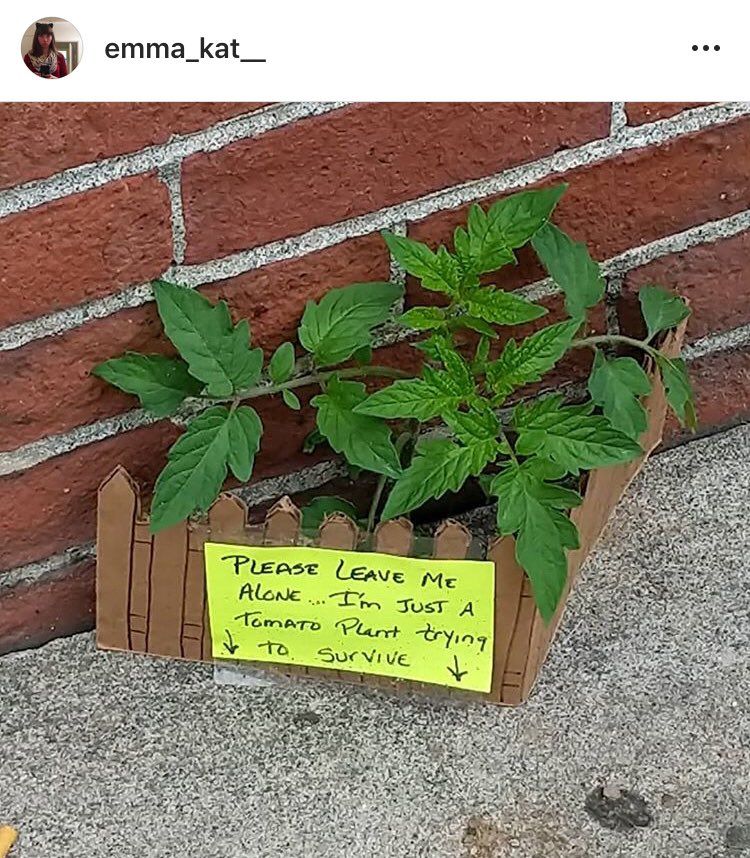 emma_kat__
PLEASE LEAVE ME
ALONE... I'm JUST A
TOMATO Plant trying
TO SURVIVE